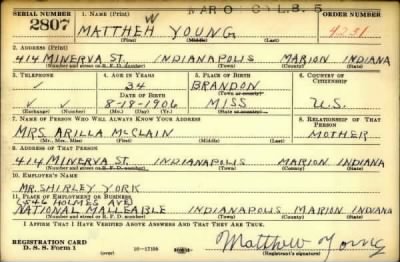 SERIAL NUMBER
1. NAME (Print)
ORDER NUMBER
2807
MATTHEW YOUNG
4231
(First) (Middle) (Last)
2. ADDRESS (Print)
414 MINERVA ST. INDIANAPOLIS MARION INDIANA
(Number and street or R. F. D. number) (Town) (County) (State)
3. TELEPHONE
4. AGE IN YEARS
5. PLACE OF BIRTH
6. COUNTRY OF CITIZENSHIP
34
BRANDON
DATE OF BIRTH
(Town or county)
8-18-1906
MISS
U.S.
(Exchange) (Number)
(Mo.) (Day) (Yr.)
(State or country)
7. NAME OF PERSON WHO WILL ALWAYS KNOW YOUR ADDRESS
8. RELATIONSHIP OF THAT PERSON
MRS ARILLA McCLAIN
MOTHER
(Mr., Mrs., Miss) (First) (Middle) (Last)
9. ADDRESS OF THAT PERSON
414 MINERVA ST. INDIANAPOLIS MARION INDIANA
(Number and street or R. F. D. number) (Town) (County) (State)
10. EMPLOYER'S NAME
MR. SHIRLEY YORK
11. PLACE OF EMPLOYMENT OR BUSINESS
HOLMES AVE
NATIONAL MALLEABLE INDIANAPOLIS MARION INDIANA
(Number and street or R. F. D. number) (Town) (County) (State)
I AFFIRM THAT I HAVE VERIFIED ABOVE ANSWERS AND THAT THEY ARE TRUE.
REGISTRATION CARD
D. S. S. Form 1
16-17105
Matthew Young
(Registrant's signature)